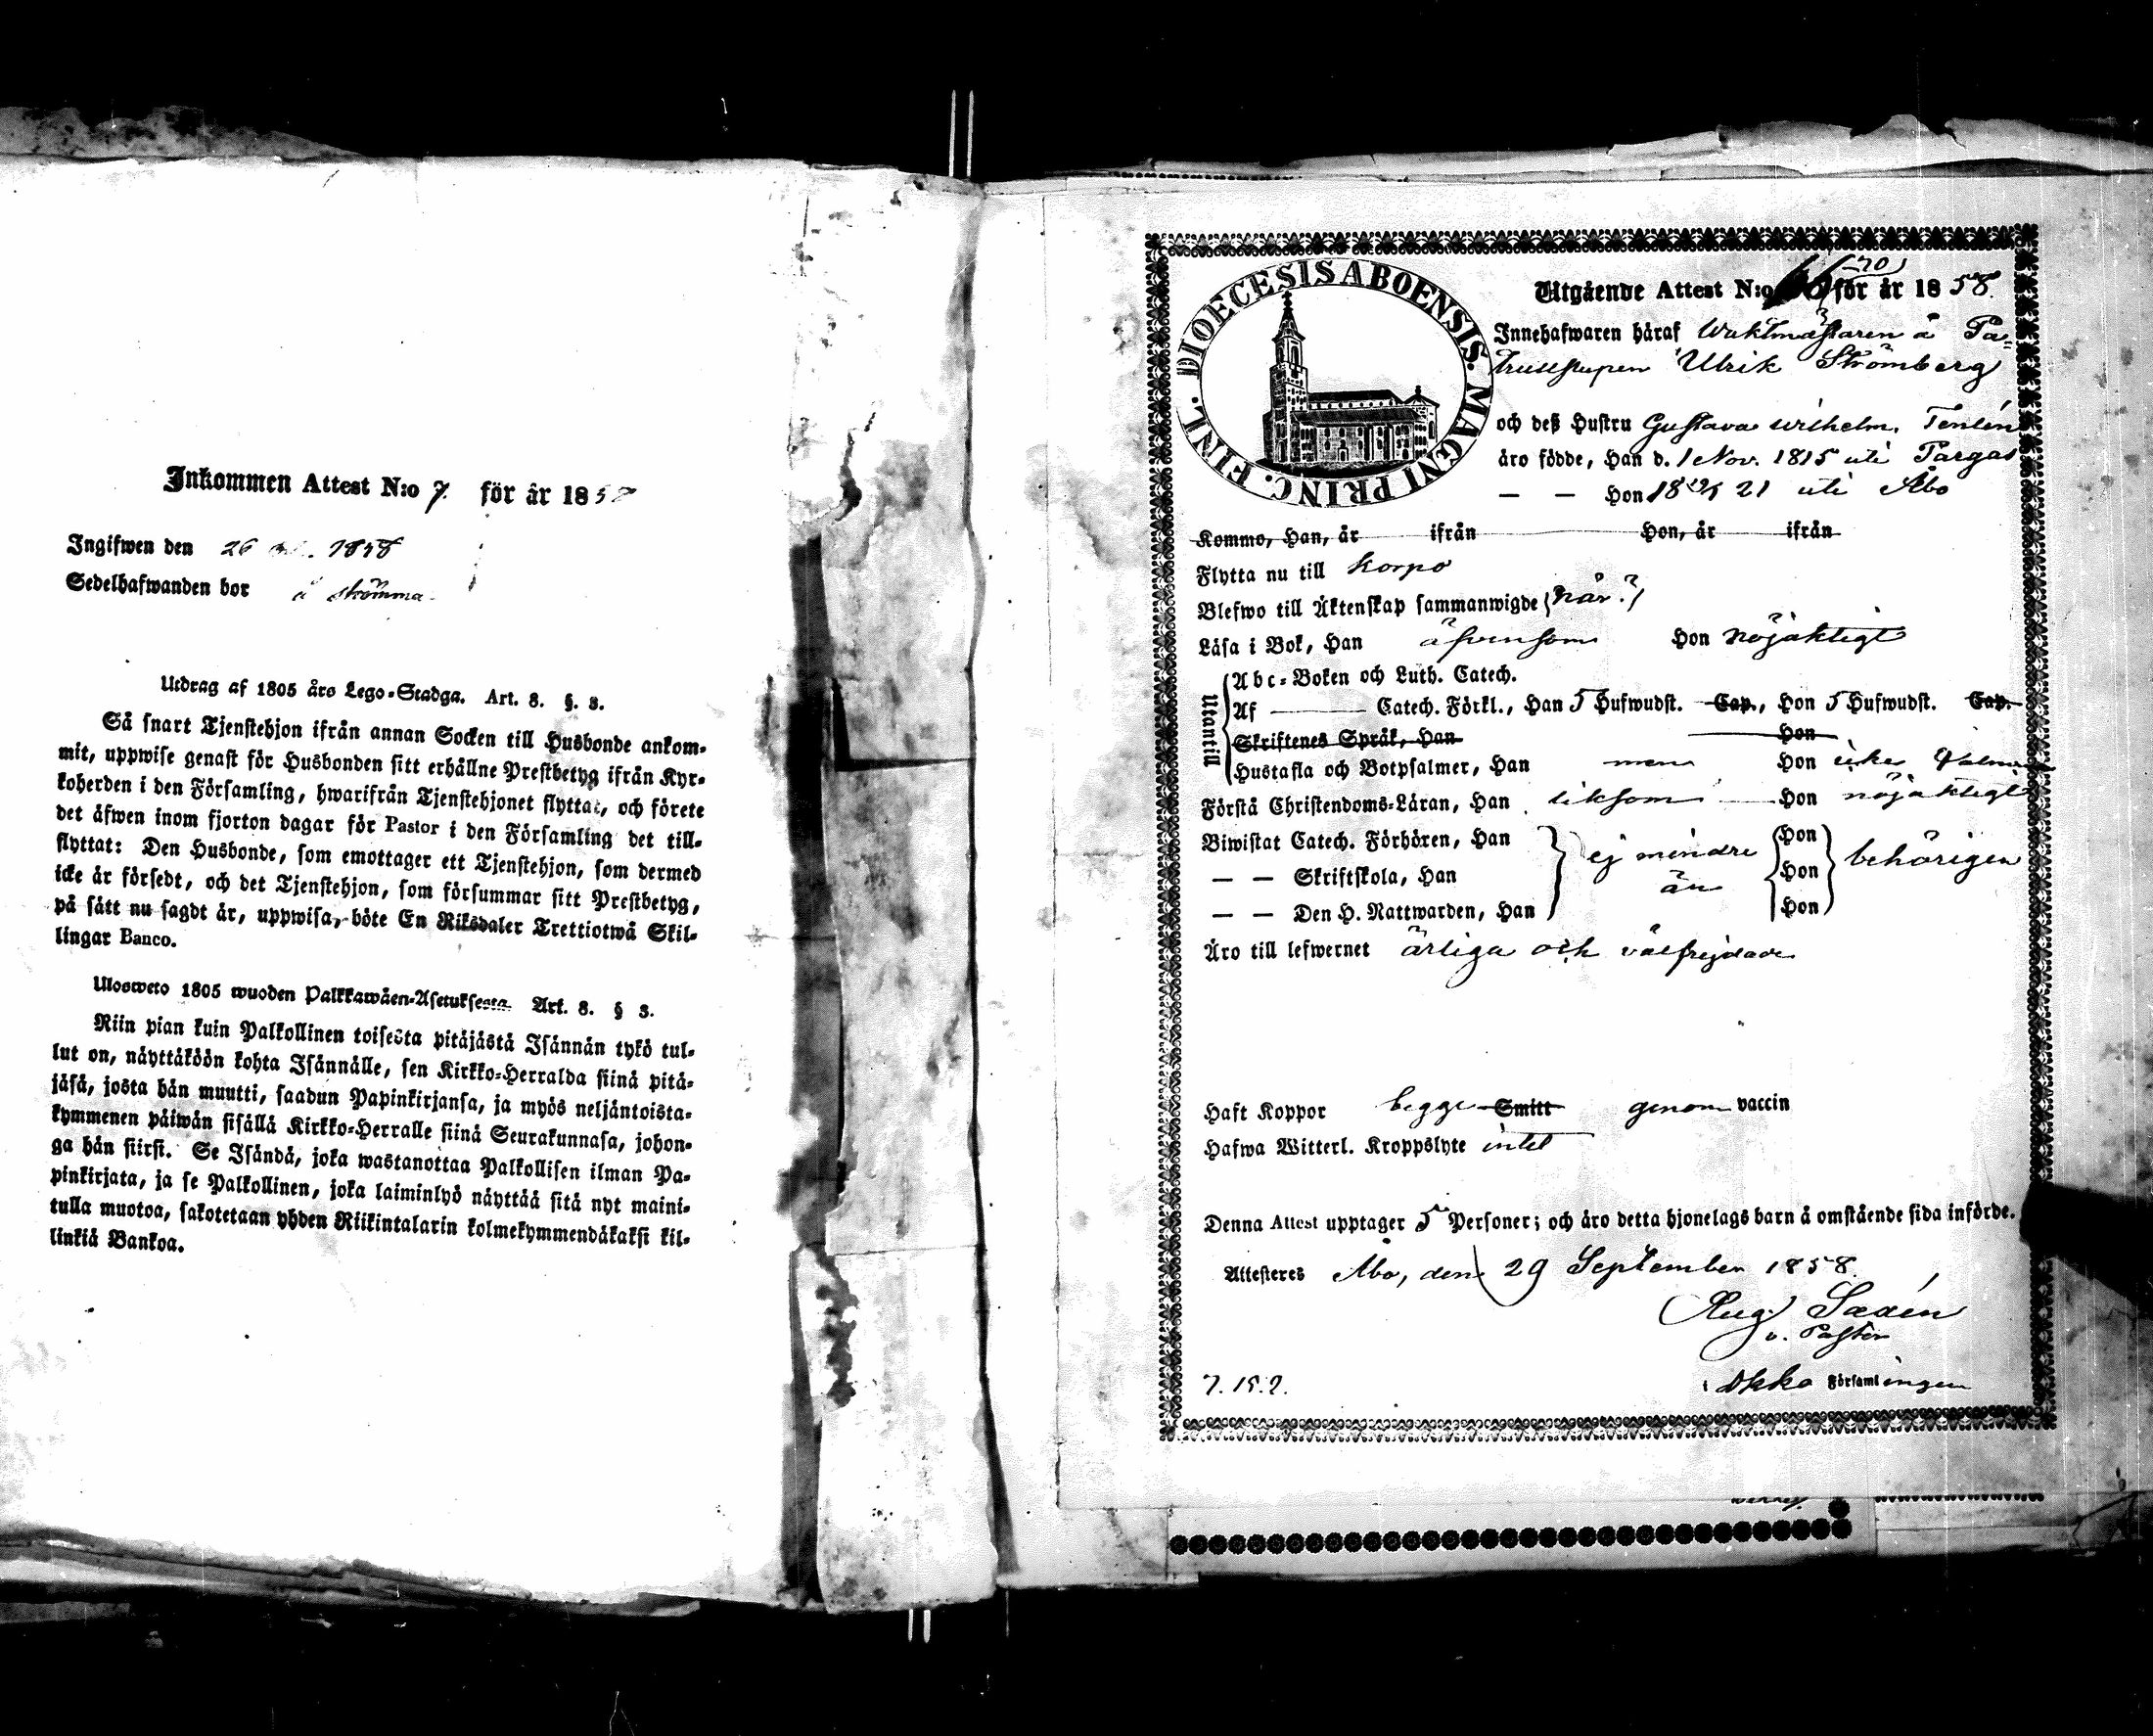 Inkommen Attest N:o 7. för år 1858
Ingifwen den 26 1858
Sedelhafwanden bor å Strömma.
Utdrag af 1805 års Lego-Stadga. Art. 8. §. 3.
Så snart Tjenstehjon ifrån annan Socken till Husbonde ankom-
mit, uppwise genast för Husbonden sitt erhållne Prestbetyg ifrån Kyr-
koherden i den Församling, hwarifrån Tjenstehjonet flyttat, och förete
det äfwen inom fjorton dagar för Pastor i den Församling det till-
flyttat: Den Husbonde, som emottager ett Tjenstehjon, som dermed
icke är försedt, och det Tjenstehjon, som försummar sitt Prestbetyg,
på sätt nu sagdt är, uppwisa, böte En Riksdaler Trettiotwå Skil-
lingar Banco.
Ulosweto 1805 wuoden Palkkawäen-Asetuksesta Art. 8. § 3.
Niin pian kuin Palkollinen toisesta pitäjästä Isännän tykö tul-
lut on, näyttäköön kohta Isännälle, sen Kirkko-Herralda siinä pitä-
jäsä, josta hän muutti, saadun Papinkirjansa, ja myös neljäntoista-
kymmenen päiwän sisällä Kirkko-Herralle siinä Seurakunnasa, johon-
ga hän siirsi. Se Isändä, joka wastanottaa Palkollisen ilman Pa-
pinkirjata, ja se Palkollinen, joka laiminlyö näyttää sitä nyt maini-
tulla muotoa, sakotetaan yhden Riikintalarin kolmekymmendäkaksi kil-
linkiä Bankoa.
DIOECESIS ABOENSIS. MAGNI PRINC. FINL.
Utgående Attest N:o 70 för år 1858.
Innehafwaren häraf Waktmästaren å Pa-
Ulrik Strömberg
och deß Hustru Gustava Wilhelm. Tenlén
äro födde, Han d. 1 Nov. 1815 uti Pargas
— — Hon 18 21 uti Åbo
Kommo, Han, år ifrån Hon, år ifrån
Flytta nu till Korpo
Blefwo till Äktenskap sammanwigde (når?)
Läsa i Bok, Han äfvensom Hon nöjaktigt
Utantill
Abc-Boken och Luth. Catech.
Af Catech. Förkl., Han 5 Hufwudst. Cap., Hon 5 Hufwudst. Cap.
Skriftenes Språk, Han Hon
Hustafla och Botpsalmer, Han men Hon icke Psalm
Förstå Christendoms-Läran, Han liksom Hon nöjaktigt
Biwistat Catech. Förhören, Han ej mindre Hon behörigen
— — Skriftskola, Han än Hon
— — Den H. Nattwarden, Han Hon
Äro till lefwernet ärliga och välfrejdade
Haft Koppor begge Smitt genom vaccin
Hafwa Witterl. Kroppslyte intet
Denna Attest upptager 5 Personer; och äro detta hjonelags barn å omstående sida införde.
Attesteres Åbo, den 29 September 1858.
Aug. Saxén
v. Pastor
7. 15. 2.
i Dkko Församlingen